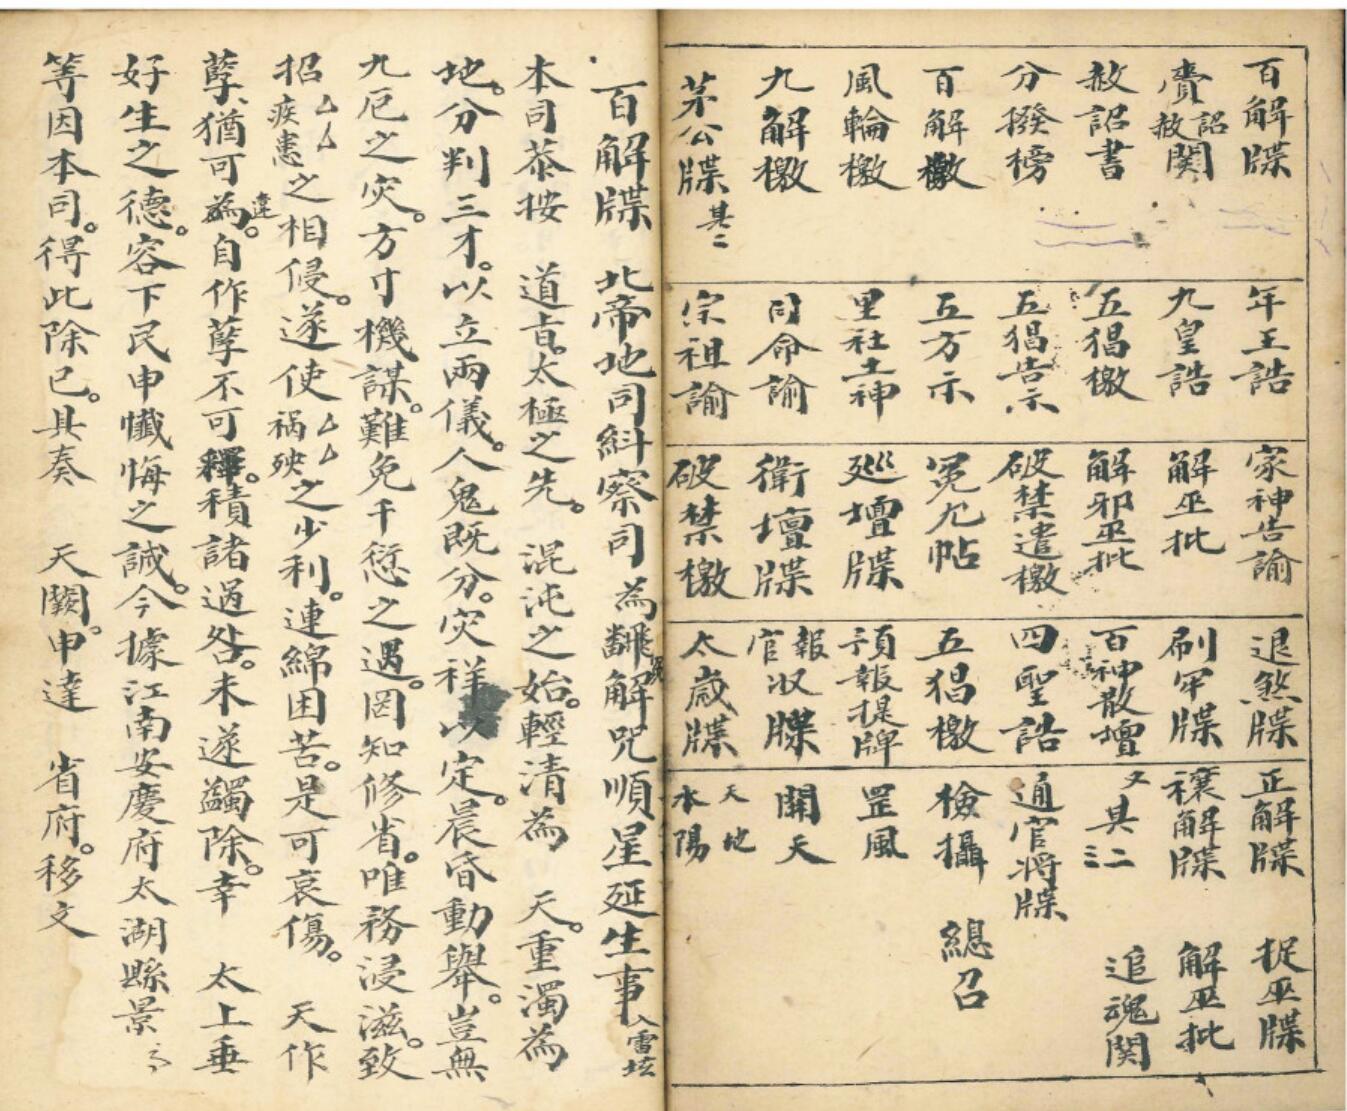 百解牒
賫詔赦関
赦詔書
分撥榜
百解檄
風輪檄
九解檄
茅公牒 其二
年王誥
九皇誥
五猖檄
五猖告示
五方示
里社土神
司命諭
宗祖諭
家神告諭
解巫批
解邪巫批
破禁遣檄
冤九帖
廵壇牒
衛壇牒
破禁檄
退煞牒
刷牢牒
百神散壇
四聖誥
五猖檄
預報提牌
報官収牒
太歲牒
正解牒
禳解牒
又其二三
通官将牒
檢攝
罡風
開天
天地水陽
捉巫牒
解巫批
追魂関
總召
百解牒 北帝地司糾察司 為翻解咒順星延生事 入雷坛
本司恭按 道旨太極之先。混沌之始。輕清為 天。重濁為
地。分判三才。以立兩儀。人鬼既分。灾祥以定。晨昏動舉。豈無
九厄之灾。方寸機謀。難免千愆之遇。罔知修省。唯務浸滋。致
招厶厶疾患之相侵。遂使厶厶禍殃之少利。連綿困苦。是可哀傷。 天作
孽。猶可為。違自作孽不可釋。積諸過咎。未遂蠲除。幸 太上垂
好生之德。容下民申懺悔之誠。今據江南安慶府太湖縣景
等因本司。得此除已。具奏 天闕。申達 省府。移文